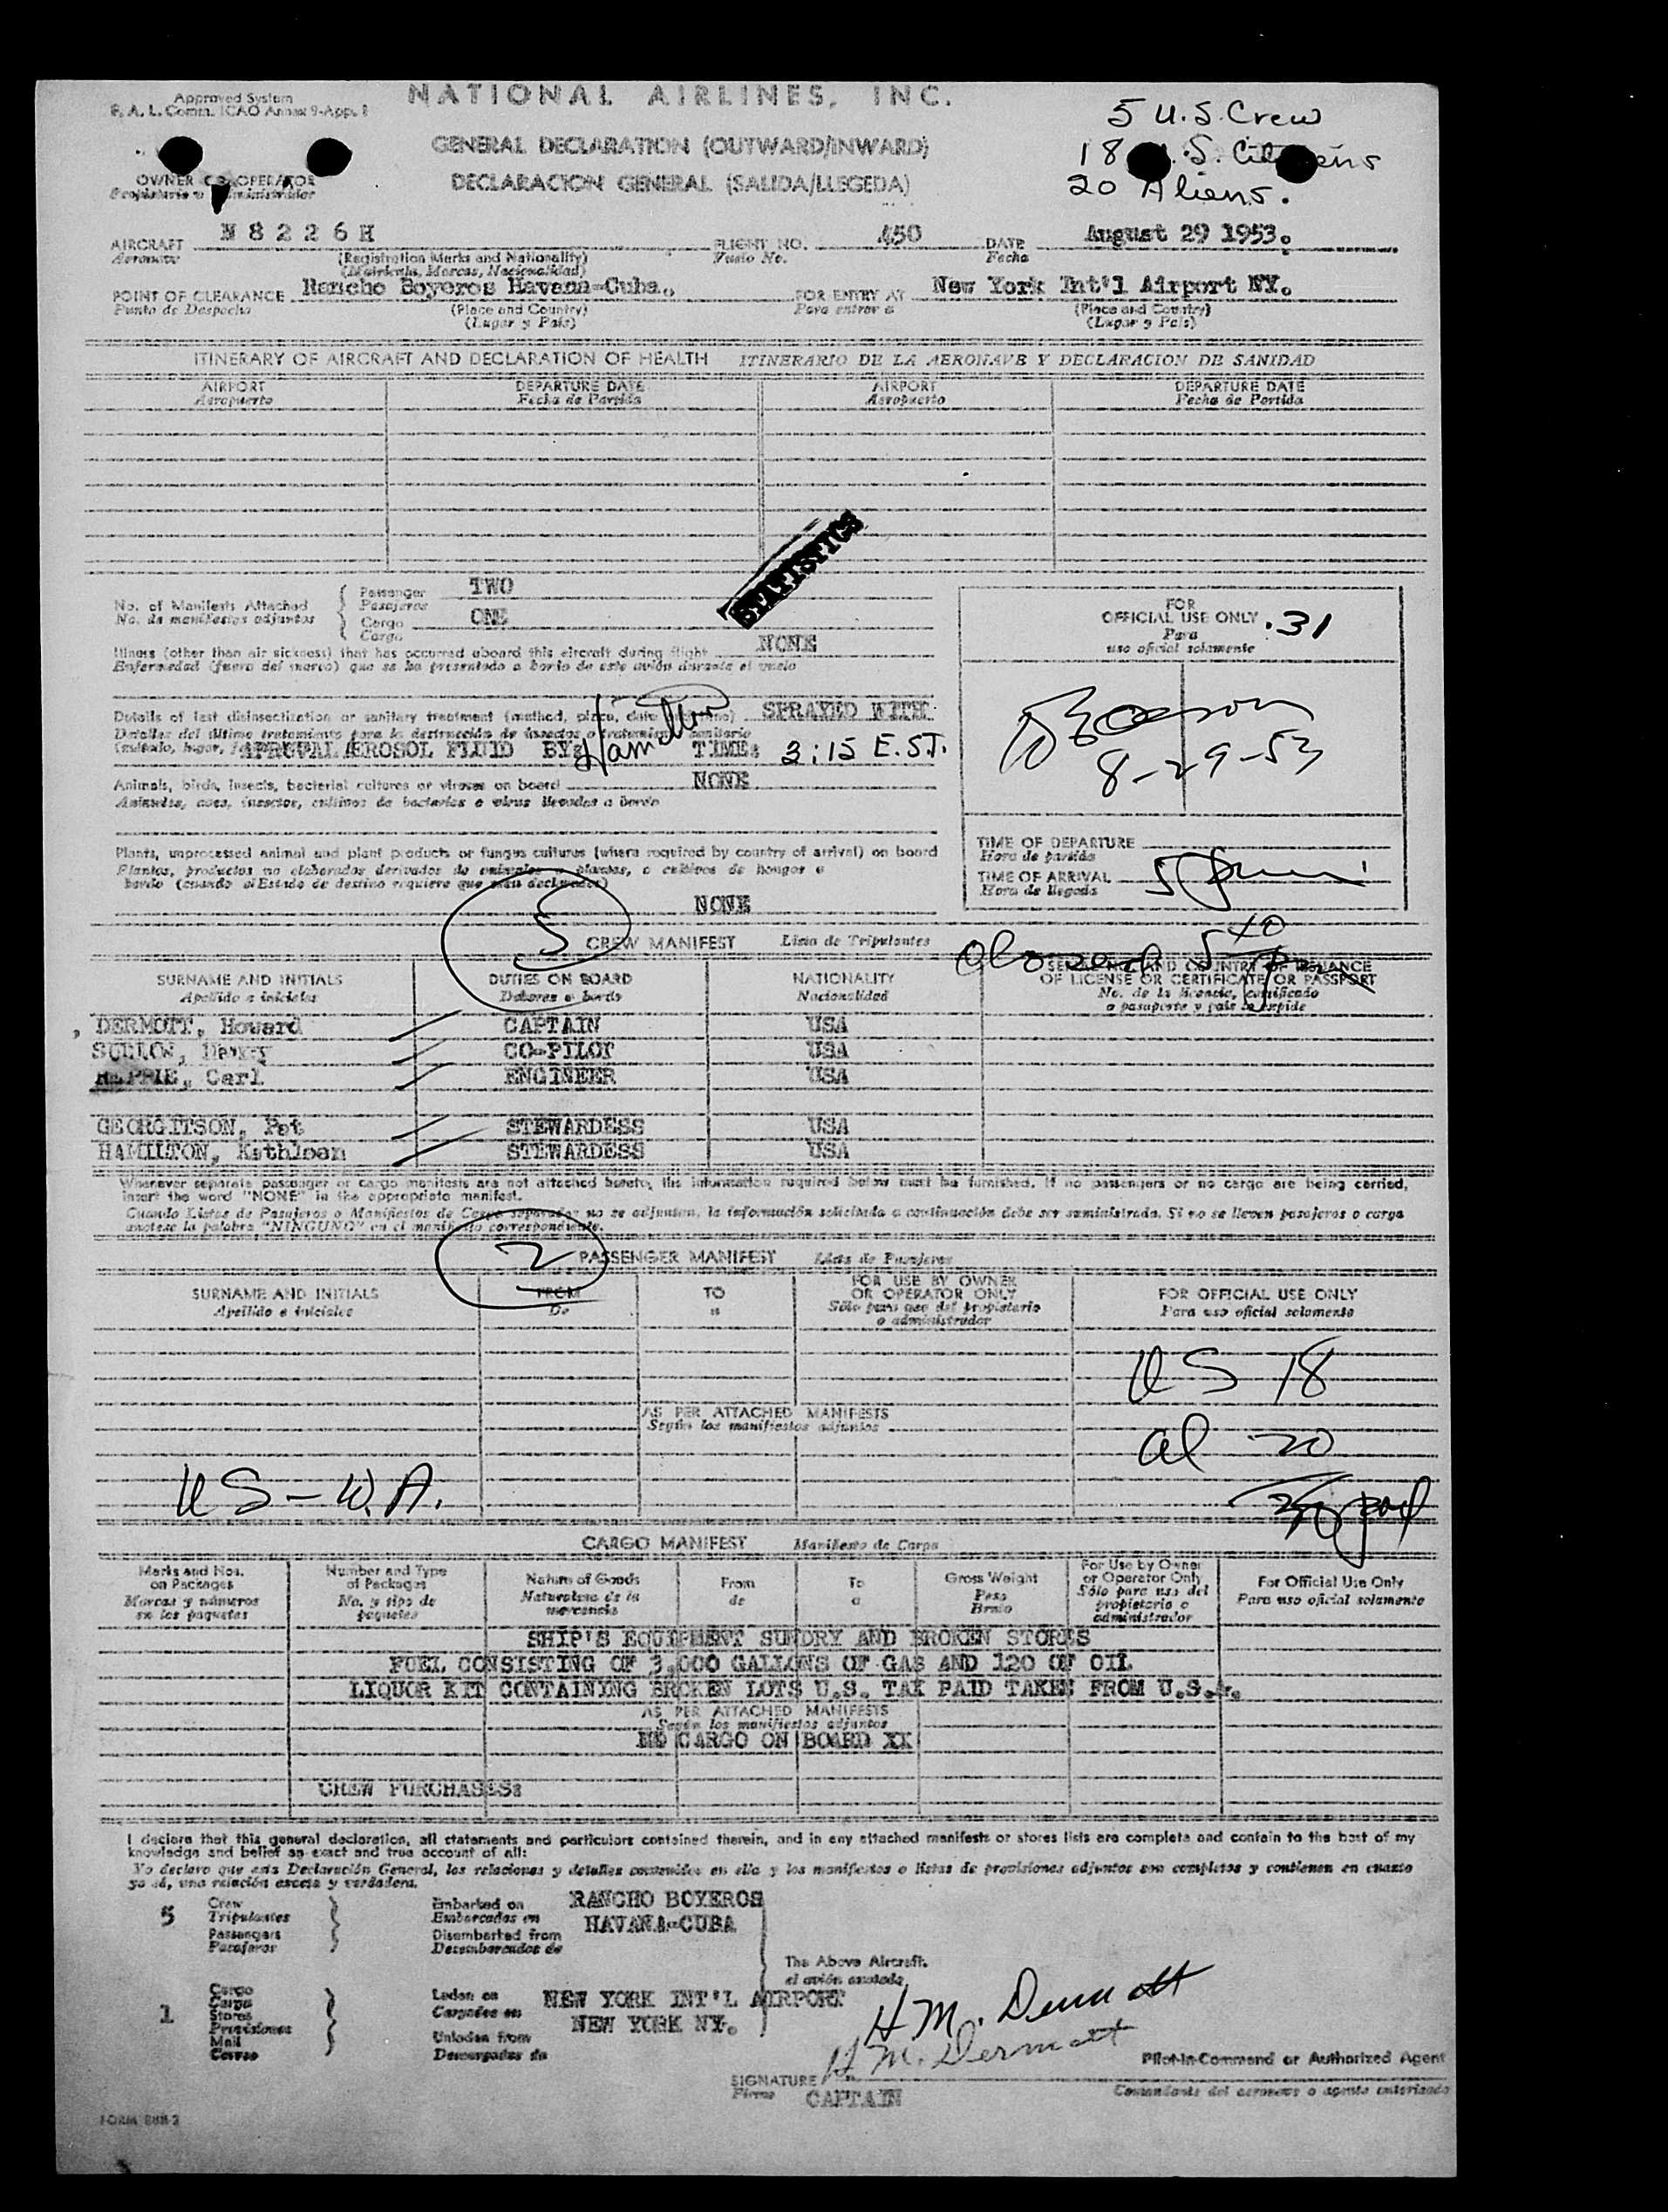 Approved System
NATIONAL AIRLINES, INC.
F. A. L. Comm. ICAO Annex 9-App. 1
5 U.S. Crew
GENERAL DECLARATION (OUTWARD/INWARD)
18 .S. Citizens
DECLARACION GENERAL (SALIDA/LLEGEDA)
20 Aliens.
OWNER OR OPERATOR
Propietario o Administrador
AIRCRAFT N8226H FLIGHT NO. 450 DATE August 29 1953.
Aeronave (Registration Marks and Nationality) Vuelo No. Fecha
(Matricula, Marcas, Nacionalidad)
POINT OF CLEARANCE Rancho Boyeros Havana-Cuba., FOR ENTRY AT New York Int'l Airport NY.
Punto de Despacho (Place and Country) Para entrar a (Place and Country)
(Lugar y Pais) (Lugar y Pais)
ITINERARY OF AIRCRAFT AND DECLARATION OF HEALTH ITINERARIO DE LA AERONAVE Y DECLARACION DE SANIDAD
AIRPORT DEPARTURE DATE AIRPORT DEPARTURE DATE
Aeropuerto Fecha de Partida Aeropuerto Fecha de Partida
STATISTICS
No. of Manifests Attached Passenger TWO
No. de manifiestos adjuntos Pasajeros
Cargo ONE
Carga
FOR
OFFICIAL USE ONLY .31
Para
uso oficial solamente
Illness (other than air sickness) that has occurred aboard this aircraft during flight NONE
Enfermedad (fuera del mareo) que se ha presentado a bordo de este avión durante el vuelo
Details of last disinsectization or sanitary treatment (method, place, date and time) SPRAYED WITH
Detalles del último tratamiento para la destrucción de insectos o tratamiento sanitario
APROVAL AEROSOL FLUID BY: Hamilton TIME: 3:15 E.S.T.
8-29-53
Animals, birds, insects, bacterial cultures or viruses on board NONE
Animales, aves, insectos, cultivos de bacterias o virus llevados a bordo
Plants, unprocessed animal and plant products or fungus cultures (where required by country of arrival) on board
Plantas, productos no elaborados derivados de animales o plantas, o cultivos de hongos a
bordo (cuando el Estado de destino requiere que sean declarados)
NONE
TIME OF DEPARTURE
Hora de partida
TIME OF ARRIVAL 5 pm
Hora de llegada
5 CREW MANIFEST Lista de Tripulantes
SURNAME AND INITIALS DUTIES ON BOARD NATIONALITY SERIAL NO. AND COUNTRY OF ISSUANCE
OF LICENSE OR CERTIFICATE OR PASSPORT
Apellido e iniciales Deberes a bordo Nacionalidad No. de la licencia, certificado
o pasaporte y pais lo expide
DERMOTT, Howard CAPTAIN USA
CO-PILOT USA
Carl ENGINEER USA
GEORGITSON, Pat STEWARDESS USA
HAMILTON, Kathleen STEWARDESS USA
Whenever separate passenger or cargo manifests are not attached hereto, the information required below must be furnished. If no passengers or no cargo are being carried,
insert the word "NONE" in the appropriate manifest.
Cuando Listas de Pasajeros o Manifiestos de Carga separados no se adjunten, la información solicitada a continuación debe ser suministrada. Si no se lleven pasajeros o carga
anotese la palabra "NINGUNO" en el manifiesto correspondiente.
2 PASSENGER MANIFEST Lista de Pasajeros
SURNAME AND INITIALS FROM TO FOR USE BY OWNER OR OPERATOR ONLY FOR OFFICIAL USE ONLY
Apellido e iniciales De a Sólo para uso del propietario o administrador Para uso oficial solamente
US 18
AS PER ATTACHED MANIFESTS
Según los manifiestos adjuntos
al 20
US - W.A.
CARGO MANIFEST Manifiesto de Carga
Marks and Nos. on Packages Number and Type of Packages Nature of Goods From To Gross Weight For Use by Owner or Operator Only For Official Use Only
Marcas y números en los paquetes No. y tipo de paquetes Naturaleza de la mercancia de a Peso Bruto Sólo para uso del propietario o administrador Para uso oficial solamente
SHIP'S EQUIPMENT SUNDRY AND BROKEN STORES
FUEL CONSISTING OF 3,000 GALLONS OF GAS AND 120 OF OIL
LIQUOR KIT CONTAINING BROKEN LOTS U.S. TAX PAID TAKEN FROM U.S.A.
AS PER ATTACHED MANIFESTS
Según los manifiestos adjuntos
NO CARGO ON BOARD XX
CREW PURCHASES:
I declare that this general declaration, all statements and particulars contained therein, and in any attached manifests or stores lists are complete and contain to the best of my
knowledge and belief an exact and true account of all:
Yo declaro que esta Declaración General, las relaciones y detalles contenidos en ella y los manifiestos o listas de provisiones adjuntos son completos y contienen en cuanto
yo sé, una relación exacta y verdadera.
5 Crew Embarked on RANCHO BOYEROS
Tripulantes Embarcados en HAVANA-CUBA
Passengers Disembarked from
Pasajeros Desembarcados de
The Above Aircraft.
el avión anotado
1 Cargo Laden on NEW YORK INT'L AIRPORT
Carga Cargados en NEW YORK NY.
Stores
Provisiones
Mail Unladen from
Correo Descargados de
H M. Dermott
H M. Dermott
Pilot-in-Command or Authorized Agent
SIGNATURE
Firma CAPTAIN Comandante del aeronave o agente autorizado
FORM